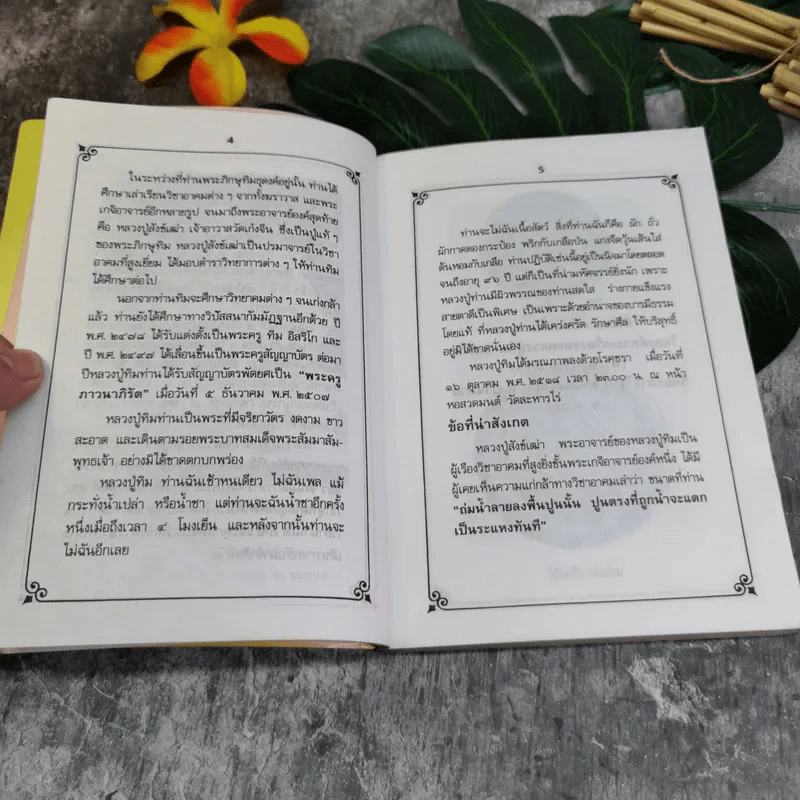 4
ในระหว่างที่ท่านพระภิกษุทิมธุดงค์อยู่นั้น ท่านได้
ศึกษาเล่าเรียนวิชาอาคมต่าง ๆ จากทั้งฆราวาส และพระ
เกจิอาจารย์อีกหลายรูป จนมาถึงพระอาจารย์องค์สุดท้าย
คือ หลวงปู่สังข์เฒ่า เจ้าอาวาสวัดเก๋งจีน ซึ่งเป็นปู่แท้ ๆ
ของพระภิกษุทิม หลวงปู่สังข์เฒ่าเป็นปรมาจารย์ในวิชา
อาคมที่สูงเยี่ยม ได้มอบตำราวิทยาการต่าง ๆ ให้ท่านทิม
ได้ศึกษาต่อไป
นอกจากท่านทิมจะศึกษาวิทยาคมต่าง ๆ จนเก่งกล้า
แล้ว ท่านยังได้ศึกษาทางวิปัสสนากัมมัฏฐานอีกด้วย ปี
พ.ศ. ๒๔๗๘ ได้รับแต่งตั้งเป็นพระครู ทิม อิสริโก และ
ปี พ.ศ. ๒๔๙๗ ได้เลื่อนขึ้นเป็นพระครูสัญญาบัตร ต่อมา
ปีหลวงปู่ทิมท่านได้รับสัญญาบัตรพัดยศเป็น “พระครู
ภาวนาภิรัต” เมื่อวันที่ ๕ ธันวาคม พ.ศ. ๒๕๐๗
หลวงปู่ทิมท่านเป็นพระที่มีจริยาวัตร งดงาม ขาว
สะอาด และเดินตามรอยพระบาทสมเด็จพระสัมมาสัม-
พุทธเจ้า อย่างมิได้ขาดตกบกพร่อง
หลวงปู่ทิม ท่านฉันเช้าหนเดียว ไม่ฉันเพล แม้
กระทั่งน้ำเปล่า หรือน้ำชา แต่ท่านจะฉันน้ำชาอีกครั้ง
หนึ่งเมื่อถึงเวลา ๔ โมงเย็น และหลังจากนั้นท่านจะ
ไม่ฉันอีกเลย
5
ท่านจะไม่ฉันเนื้อสัตว์ สิ่งที่ท่านฉันก็คือ ผัก ถั่ว
ผักกาดดองกระป๋อง พริกกับเกลือป่น แกงจืดวุ้นเส้นใส่
ต้นหอมกับเกลือ ท่านปฏิบัติเช่นนี้อยู่เป็นนิจมาโดยตลอด
จนถึงอายุ ๙๖ ปี แต่ก็เป็นที่น่ามหัศจรรย์ยิ่งนัก เพราะ
หลวงปู่ท่านมีผิวพรรณของท่านสดใส ร่างกายแข็งแรง
สายตาดีเป็นพิเศษ เป็นเพราะด้วยอำนาจของบารมีธรรม
โดยแท้ ที่หลวงปู่ท่านได้เคร่งครัด รักษาศีล ให้บริสุทธิ์
อยู่มิได้ขาดนั่นเอง
หลวงปู่ทิมได้มรณภาพลงด้วยโรคชรา เมื่อวันที่
๑๖ ตุลาคม พ.ศ. ๒๕๑๘ เวลา ๒๓.๐๐ น. ณ หน้า
หอสวดมนต์ วัดละหารไร่
ข้อที่น่าสังเกต
หลวงปู่สังข์เฒ่า พระอาจารย์ของหลวงปู่ทิมเป็น
ผู้เรืองวิชาอาคมที่สูงยิ่งชั้นพระเกจิอาจารย์องค์หนึ่ง ได้มี
ผู้เคยเห็นความแก่กล้าทางวิชาอาคมเล่าว่า ขนาดที่ท่าน
“ถ่มน้ำลายลงพื้นปูนนั้น ปูนตรงที่ถูกน้ำจะแตก
เป็นระแหงทันที”